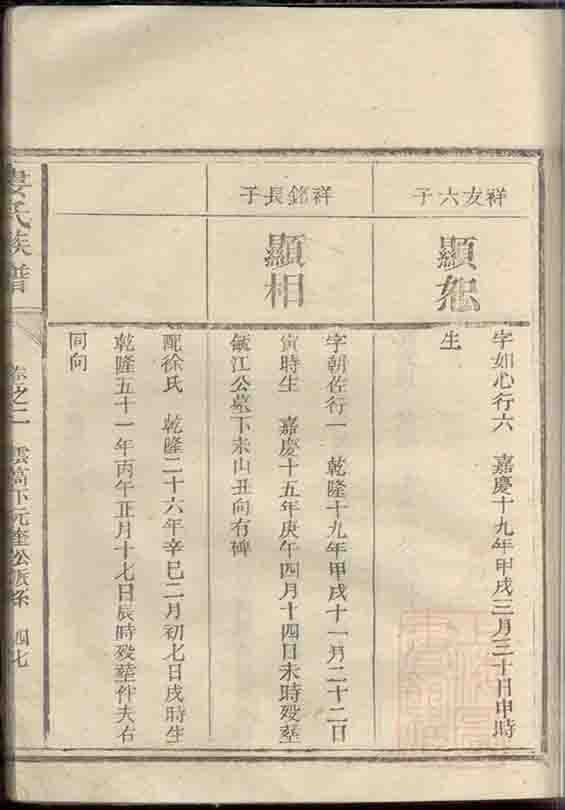 祥友六子
顯恕
字如心行六 嘉慶十九年甲戌三月三十日申時
生
祥銘長子
顯相
字朝佐行一 乾隆十九年甲戌十一月二十二日
寅時生 嘉慶十五年庚午四月十四日未時殁塟
江公墓下未山丑向有碑
配徐氏 乾隆二十六年辛巳二月初七日戌時生
乾隆五十一年丙午正月十七日辰時殁塟伴夫右
同向
婁氏族譜
卷之二 雲高下元奎公派系 四七